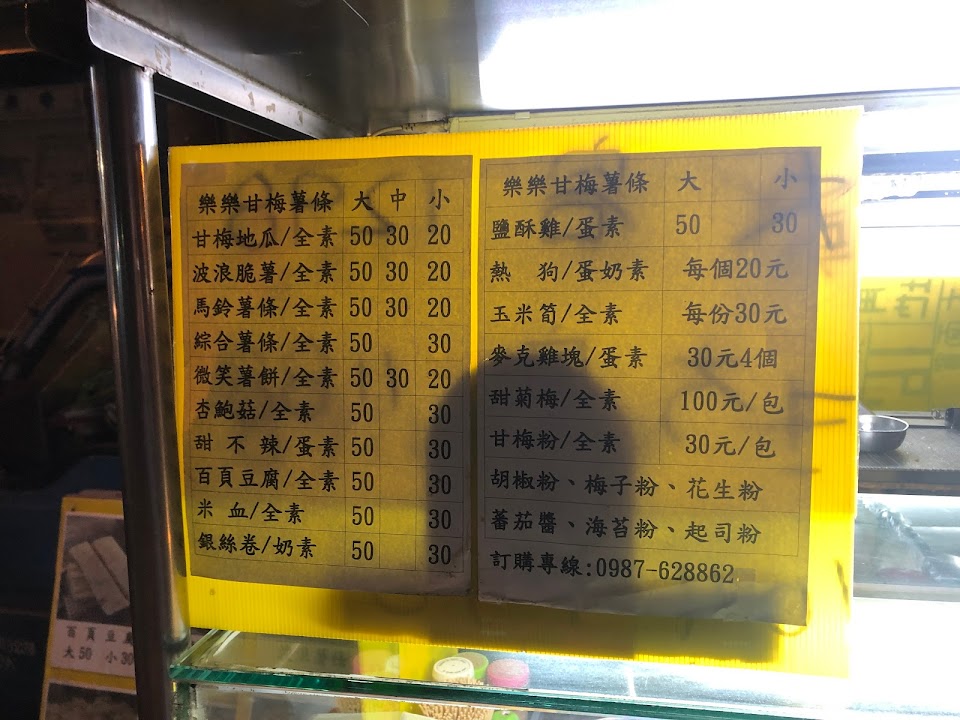 樂樂甘梅薯條 大 中 小
甘梅地瓜/全素 50 30 20
波浪脆薯/全素 50 30 20
馬鈴薯條/全素 50 30 20
綜合薯條/全素 50 30
微笑薯餅/全素 50 30 20
杏鮑菇/全素 50 30
甜不辣/蛋素 50 30
百頁豆腐/全素 50 30
米血/全素 50 30
銀絲卷/奶素 50 30
樂樂甘梅薯條 大 小
鹽酥雞/蛋素 50 30
熱 狗/蛋奶素 每個20元
玉米筍/全素 每份30元
麥克雞塊/蛋素 30元4個
甜菊梅/全素 100元/包
甘梅粉/全素 30元/包
胡椒粉、梅子粉、花生粉
蕃茄醬、海苔粉、起司粉
訂購專線:0987-628862
百頁豆
大50 小30